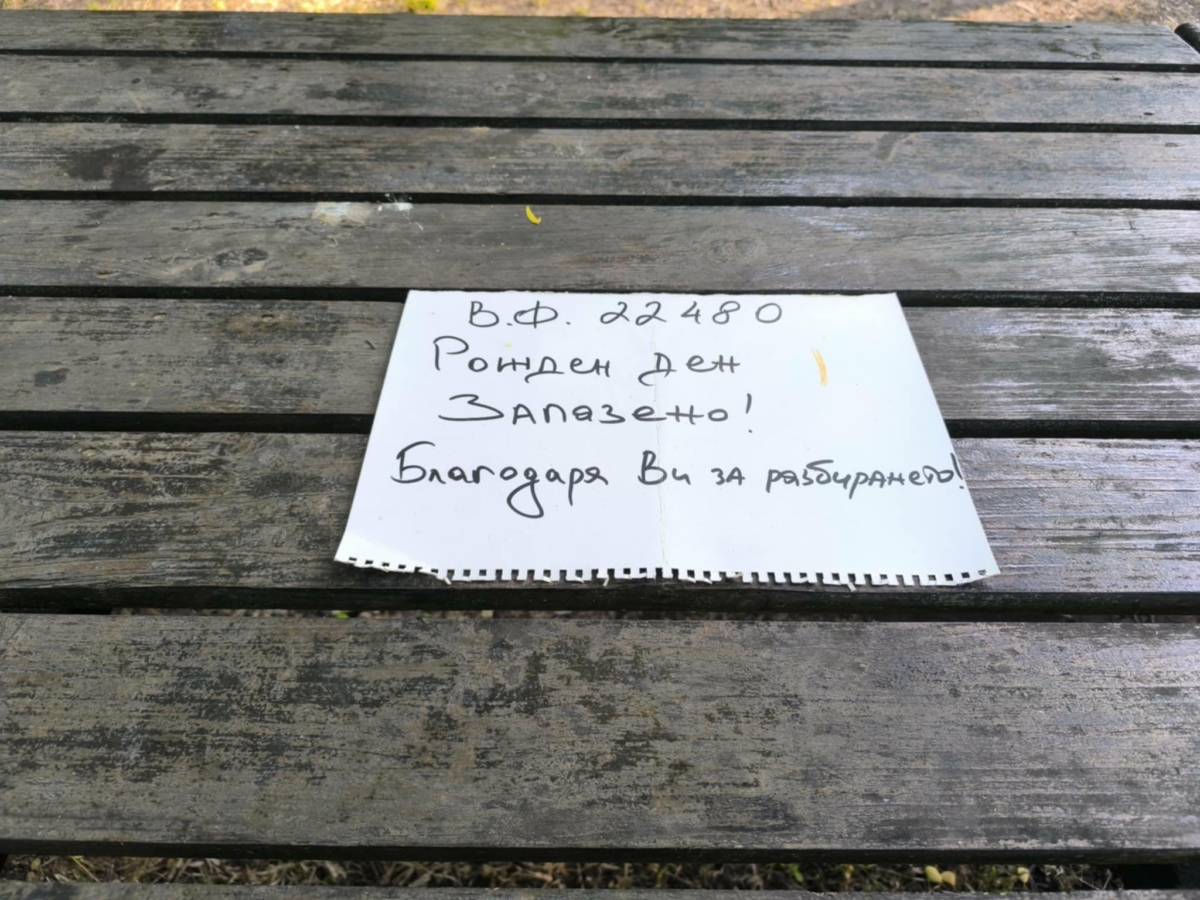 В.Ф. 22480
Рожден ден
Запазено!
Благодаря Ви за разбирането!